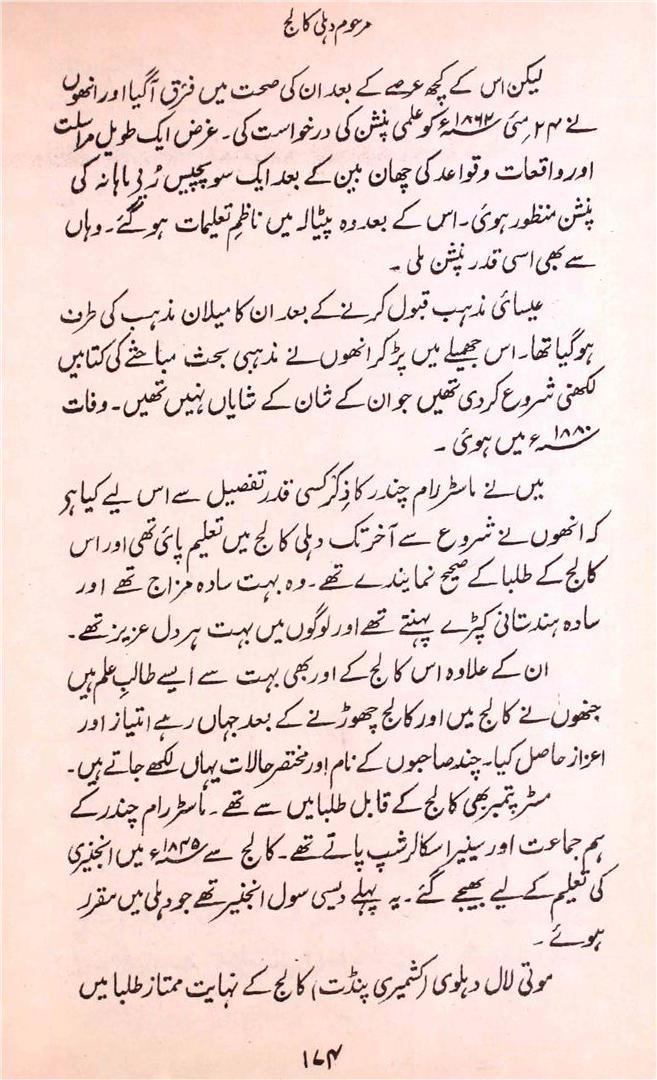 مرحوم دہلی کالج
لیکن اس کے کچھ عرصے کے بعد ان کی صحت میں فرق آگیا اور انھوں
نے ۲۴ مئی ۱۸۶۲ء کو علمی پنشن کی درخواست کی۔ غرض ایک طویل مراسلت
اور واقعات و قواعد کی چھان بین کے بعد ایک سو پچیس رُپے ماہانہ کی
پنشن منظور ہوئی۔ اس کے بعد وہ پٹیالہ میں ناظمِ تعلیمات ہوگئے۔ وہاں
سے بھی اسی قدر پنشن ملی۔
عیسائی مذہب قبول کرنے کے بعد ان کا میلان مذہب کی طرف
ہوگیا تھا۔ اس جھمیلے میں پڑ کر انھوں نے مذہبی بحث مباحثے کی کتابیں
لکھنی شروع کردی تھیں جو ان کے شان کے شایاں نہیں تھیں۔ وفات
۱۸۸۰ء میں ہوئی۔
میں نے ماسٹر رام چندر کا ذِکر کسی قدر تفصیل سے اس لیے کیا ہر
کہ انھوں نے شروع سے آخر تک دہلی کالج میں تعلیم پائی تھی اور اس
کالج کے طلبا کے صحیح نمایندے تھے۔ وہ بہت سادہ مزاج تھے اور
سادہ ہندستانی کپڑے پہنتے تھے اور لوگوں میں بہت ہر دل عزیز تھے۔
ان کے علاوہ اس کالج کے اور بھی بہت سے ایسے طالبِ علم ہیں
جنھوں نے کالج میں اور کالج چھوڑنے کے بعد جہاں رہے امتیاز اور
اعزاز حاصل کیا۔ چند صاحبوں کے نام اور مختصر حالات یہاں لکھے جاتے ہیں۔
مسٹر پتمبر بھی کالج کے قابل طلبا میں سے تھے۔ ماسٹر رام چندر کے
ہم جماعت اور سینیر اسکالرشپ پاتے تھے۔ کالج سے ۱۸۴۵ء میں انجنیری
کی تعلیم کے لیے بھیجے گئے۔ یہ پہلے دیسی سول انجنیر تھے جو دہلی میں مقرر
ہوئے۔
موتی لال دہلوی (کشمیری پنڈت) کالج کے نہایت ممتاز طلبا میں
۱۷۴